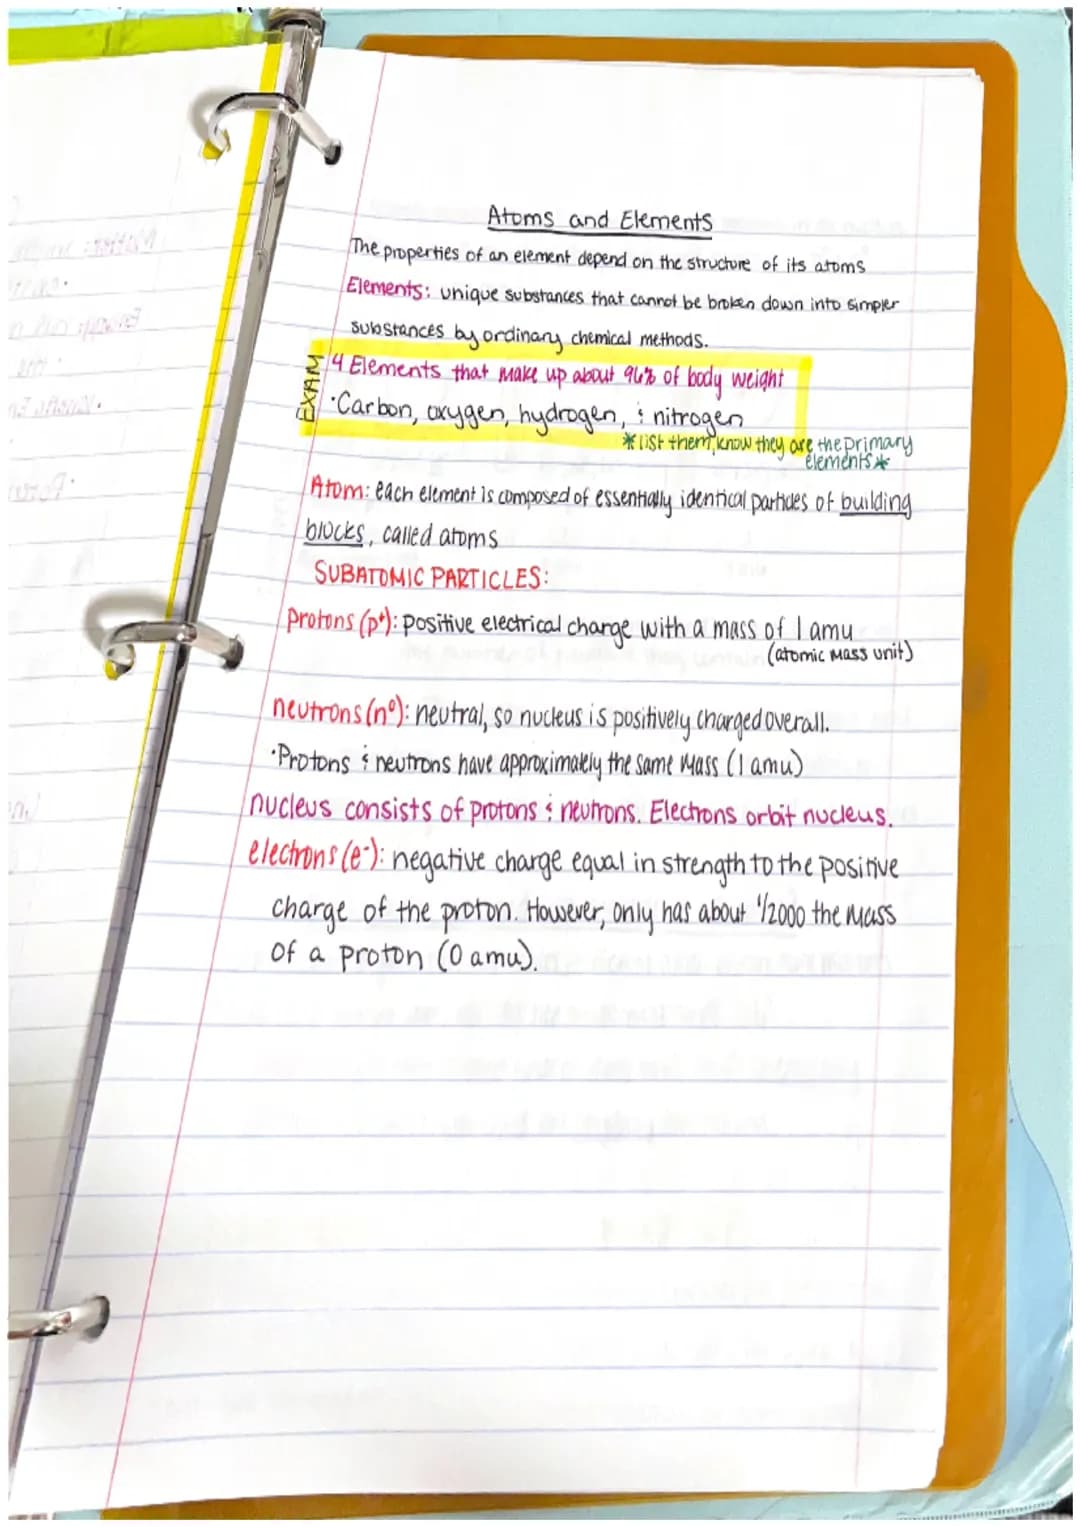 Atoms and Elements
The properties of an element depend on the structure of its atoms
Elements: unique substances that cannot be broken down into simpler
substances by ordinary chemical methods.
EXAM
4 Elements that make up about 96% of body weight
·Carbon, oxygen, hydrogen, & nitrogen
*list them, know they are the primary
elements*
Atom: each element is composed of essentially identical particles of building
blocks, called atoms
SUBATOMIC PARTICLES:
Protons (p⁺): positive electrical charge with a mass of 1 amu
(atomic mass unit)
neutrons (n⁰): neutral, so nucleus is positively charged overall.
·Protons & neutrons have approximately the same mass (1 amu)
nucleus consists of protons & neutrons. Electrons orbit nucleus.
electrons (e⁻): negative charge equal in strength to the positive
charge of the proton. However, only has about 1/2000 the mass
of a proton (0 amu).